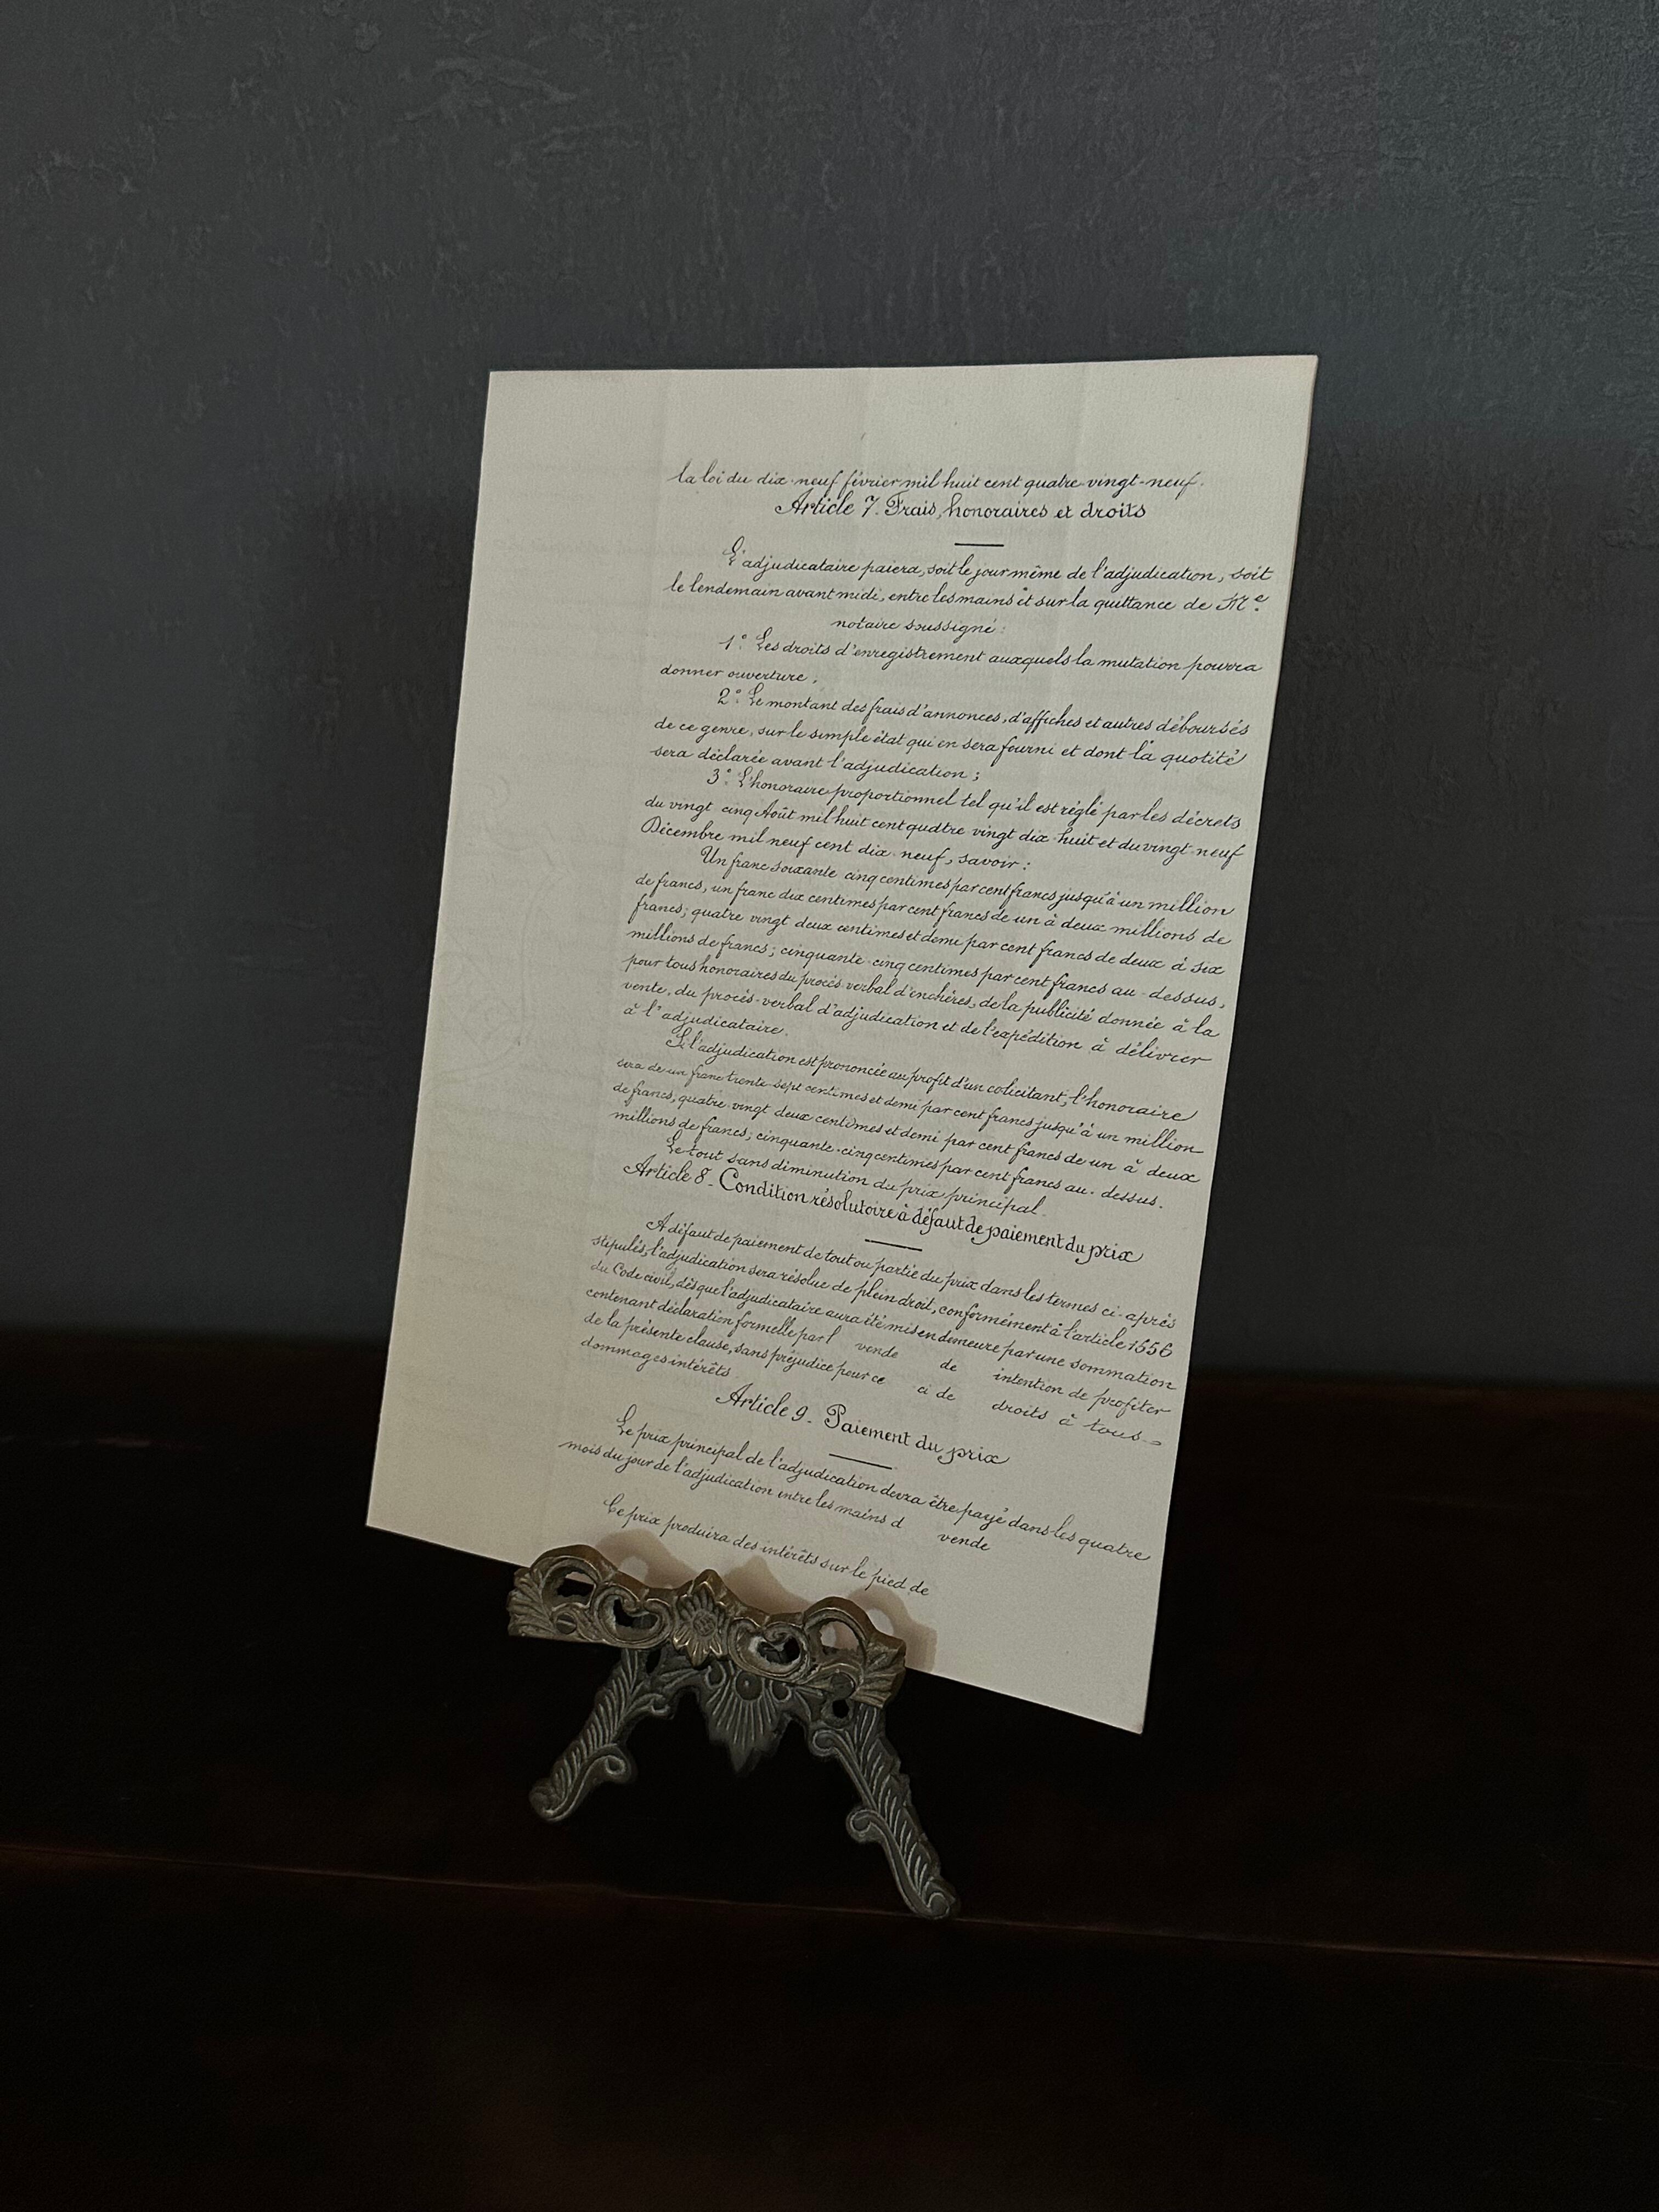 la loi du dix-neuf février mil huit cent quatre-vingt-neuf.
Article 7. Frais, honoraires et droits
L'adjudicataire paiera, soit le jour même de l'adjudication, soit
le lendemain avant midi, entre les mains et sur la quittance de Me.
notaire soussigné:
1°. Les droits d'enregistrement auxquels la mutation pourra
donner ouverture,
2°. Le montant des frais d'annonces, d'affiches et autres déboursés
de ce genre, sur le simple état qui en sera fourni et dont la quotité
sera déclarée avant l'adjudication;
3°. L'honoraire proportionnel tel qu'il est réglé par les décrets
du vingt cinq Août mil huit cent quatre vingt dix-huit et du vingt-neuf
Décembre mil neuf cent dix-neuf, savoir:
Un franc soixante cinq centimes par cent francs jusqu'à un million
de francs, un franc dix centimes par cent francs de un à deux millions de
francs; quatre vingt deux centimes et demi par cent francs de deux à six
millions de francs; cinquante-cinq centimes par cent francs au-dessus,
pour tous honoraires du procès-verbal d'enchères, de la publicité donnée à la
vente, du procès-verbal d'adjudication et de l'expédition à délivrer
à l'adjudicataire.
Si l'adjudication est prononcée au profit d'un colicitant, l'honoraire
sera de un franc trente-sept centimes et demi par cent francs jusqu'à un million
de francs, quatre-vingt deux centimes et demi par cent francs de un à deux
millions de francs; cinquante-cinq centimes par cent francs au-dessus.
Le tout sans diminution du prix principal.
Article 8- Condition résolutoire à défaut de paiement du prix
A défaut de paiement de tout ou partie du prix dans les termes ci-après
stipulés, l'adjudication sera résolue de plein droit, conformément à l'article 1656
du Code civil, dès que l'adjudicataire aura été mis en demeure par une sommation
contenant déclaration formelle par l vende de intention de profiter
de la présente clause, sans préjudice pour ce ci de droits à tous
dommages intérêts
Article 9- Paiement du prix
Le prix principal de l'adjudication devra être payé dans les quatre
mois du jour de l'adjudication entre les mains d vende
Ce prix produira des intérêts sur le pied de